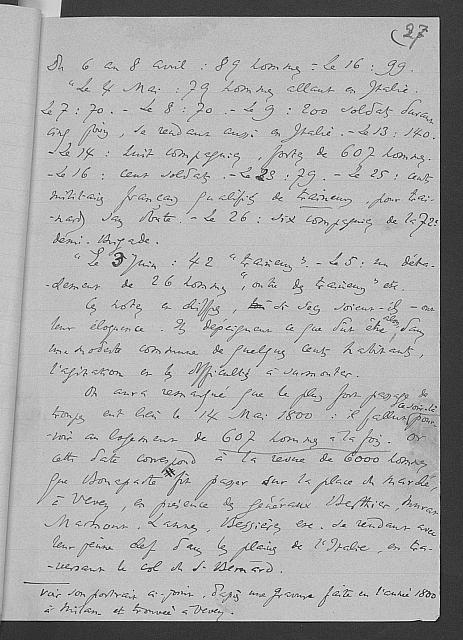 27
Du 6 au 8 avril : 89 hommes - Le 16 : 99.
"Le 4 Mai : 79 hommes allant en Italie.
Le 7 : 70. - Le 8 : 70 - Le 9 : 200 soldats durant
cinq jours, se rendant aussi en Italie. - Le 13 : 140.
- Le 14 : huit compagnies, fortes de 607 hommes.
- Le 16 : cent soldats. - Le 23 : 79. - Le 25 : cent
militaires français qualifiés de traineurs, pour trai-
nards sans doute. - Le 26 : six compagnies de la 72e
demi-Brigade.
"Le 3 Juin : 42 "traineurs". - Le 5 : un déta-
-chement de 26 hommes, "outre des traineurs" etc.
Ces notes en chiffres, si secs soient-ils - ont
leur éloquence. Ils dépeignent ce que dut être alors, dans
une modeste commune de quelques cents habitants,
l'agitation et les difficultés à surmonter.
On aura remarqué que le plus fort passage de
troupes eut lieu le 14 Mai 1800 : il fallut pour-
voir au logement de 607 hommes à la fois. Or
cette date correspond à la revue de 6000 hommes
que Bonaparte # fit passer sur la place du marché
à Vevey, en présence des généraux Berthier, Murat
Marmont, Lannes, Bessières etc. se rendant avec
leur jeune chef dans les plaines de l'Italie, en tra-
-versant le col du St-Bernard.
Voir son portrait ci-joint, d'après une gravure faite en l'année 1800
à Milan et trouvée à Vevey.